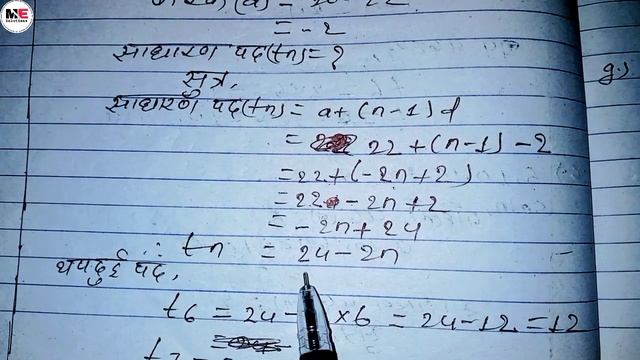 ME
Solutions
= -2
साधारण पद(tn) = ?
सुत्र,
g.)
साधारण पद(tn) = a + (n-1) d
= 22 + (n-1) -2
= 22 + (-2n+2)
= 22 - 2n + 2
= -2n + 24
∴ tn = 24 - 2n
थपदुई पद,
t6 = 24 - × 6 = 24 - 12 = 12